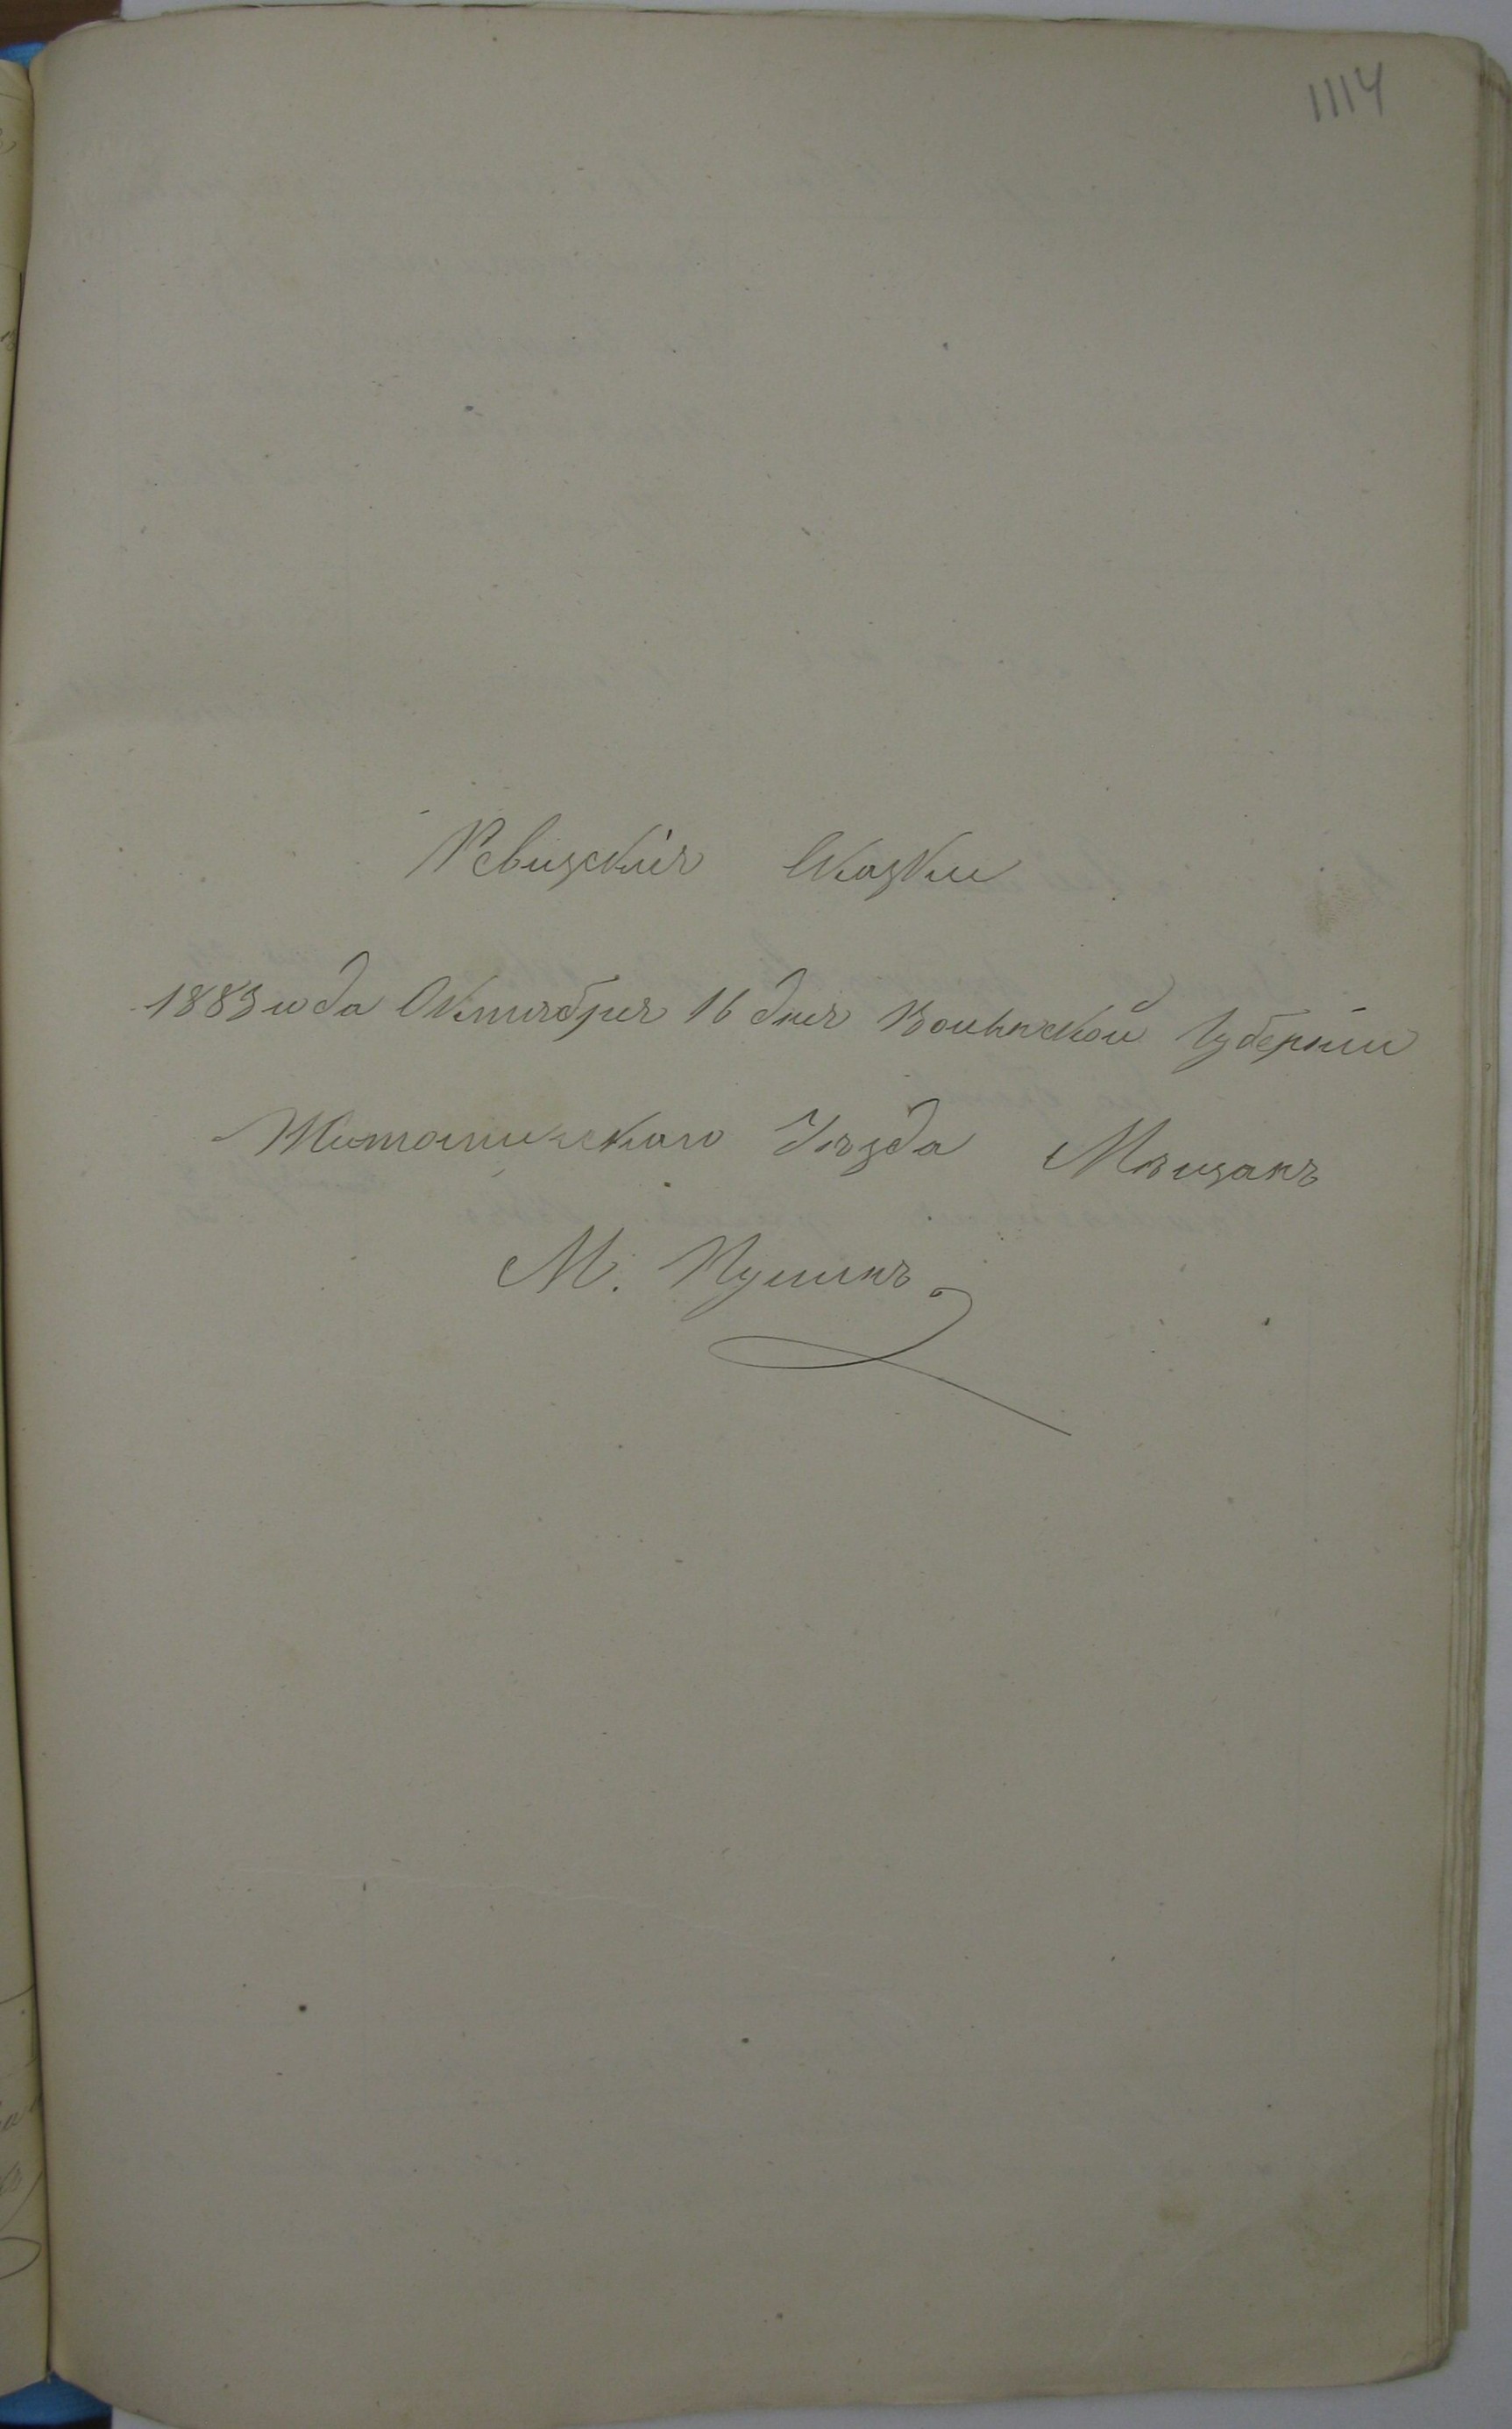 1114
Ревизскія Сказки
1883 года Октября 16 дня Волынской Губерніи
Житомирскаго Уѣзда Мѣщанъ
М. Пулинъ